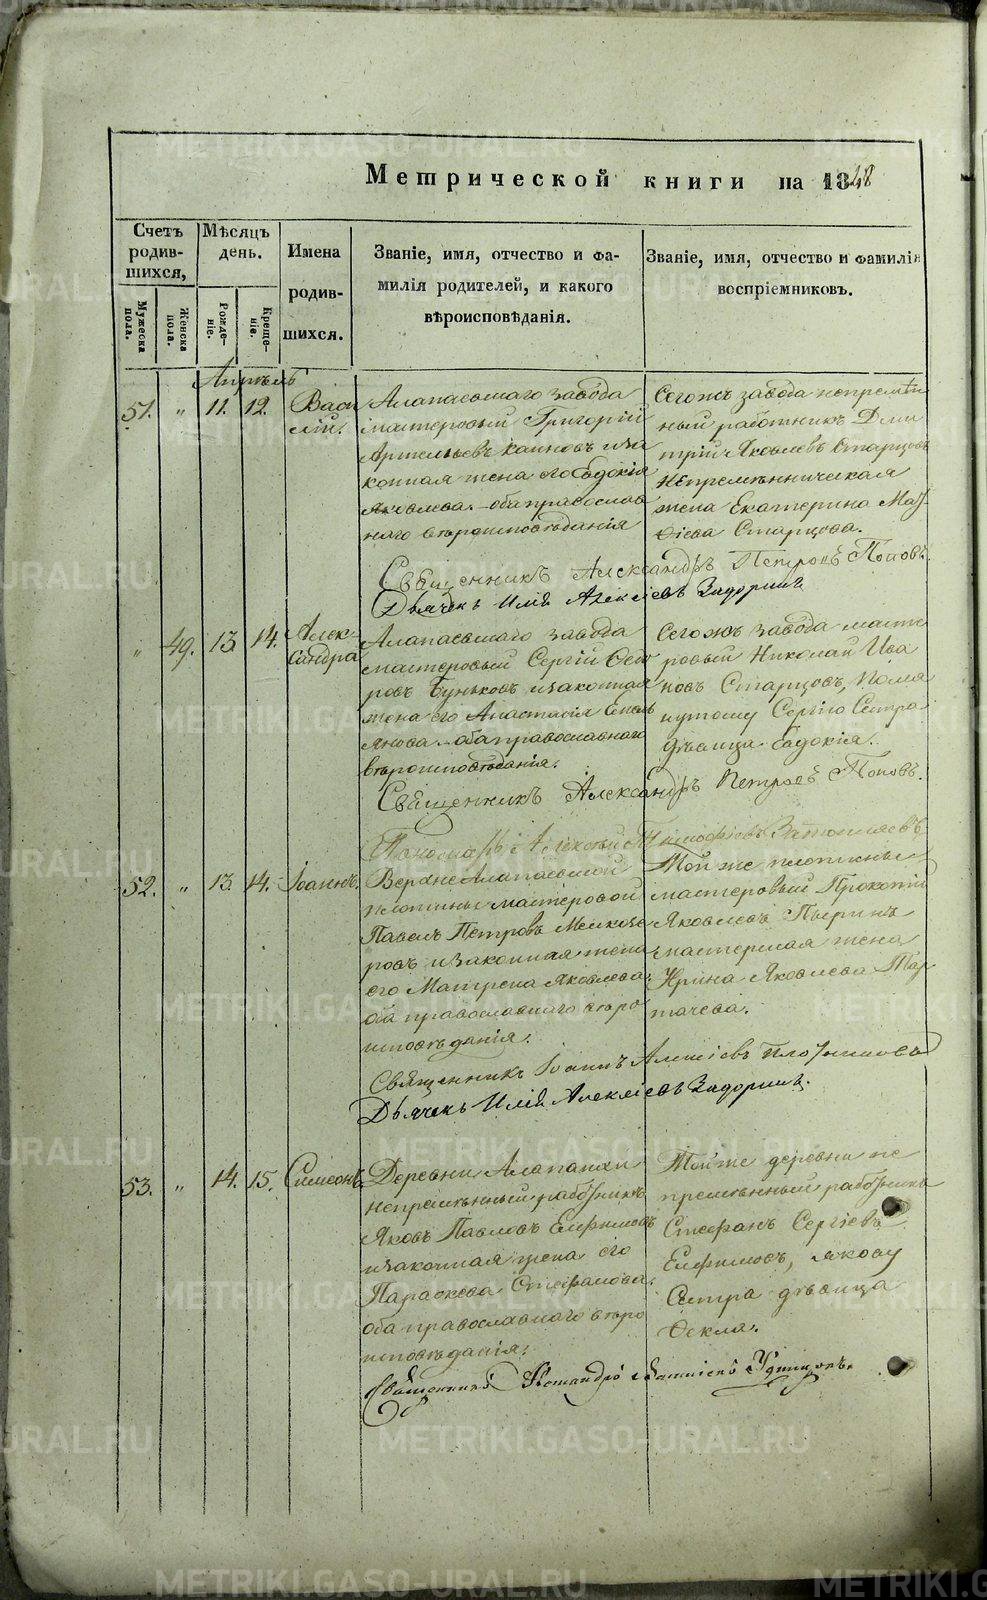 Метрической книги на 1848
Счетъ родив-шихся,
Мѣсяцъ день.
Имена родив-шихся.
Званіе, имя, отчество и фа-
милія родителей, и какого
вѣроисповѣданія.
Званіе, имя, отчество и фамилія
воспріемниковъ.
Мужеска пола.
Женска пола.
Рожде-ніе.
Креще-ніе.
Апрѣль
51. " 11. 12. Васи
лій.
Алапаевскаго завода
мастеровый Григорій
законная
конная жена его Евдокія
Яковлева. оба православ
наго вѣроисповѣданія
Сегожъ завода непремѣн
ный работникъ Дми
трій Яковлевъ Старцовъ
Непремѣнническая
жена Екатерина Маѳ-
ѳіева Старцова.
Священникъ Александръ Петровъ Поповъ.
Дьячекъ Илія Алексіевъ Задоринъ
" 49. 13. 14. Алек-
сандра
Алапаевскаго завода
мастеровый Сергій Ѳедо
ровъ Буньковъ и законная
жена его Анастасія Емель
янова. оба православнаго
вѣроисповѣданія.
Сегожъ завода масте
ровый Николай Ива
новъ Старцовъ, помя
нутому Сергію Сестра
дѣвица Евдокія.
Священникъ Александръ Петровъ Поповъ.
Пономарь Алексѣй Тимофіевъ
52. " 13. 14. Іоаннъ.
Верхнеалапаевской
плотины мастеровой
Павелъ Петровъ
ровъ и законная жена
его Матрена Яковлева.
оба православнаго вѣро
исповѣданія.
Той же плотины
мастеровый Прокопій
Яковлевъ
мастерская жена
Ирина Яковлева Тар
тачева.
Священникъ Іоаннъ Алексіевъ Плотниковъ
Дьячекъ Илій Алексіевъ Задоринъ.
53. " 14. 15. Симеонъ.
Деревни Алапаихи
непремѣнный работникъ
Яковъ Павловъ Ефимовъ
и законная жена его
Параскева Стефанова.
оба православнаго вѣро
исповѣданія.
Той же деревни не
премѣнный работникъ
Стефанъ Сергіевъ
Ефимовъ, Якову
Сестра дѣвица
Ѳекла.
Священникъ Удинцовъ.
METRIKI.GASO-URAL.RU